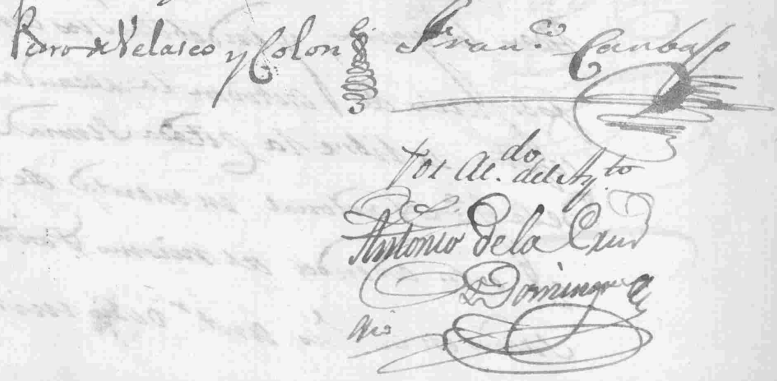 Pedro de Velasco y Colon
Fran.co Carbajo
Por Ac.do del Ay.to
Antonio de la Cruz
Dominguez